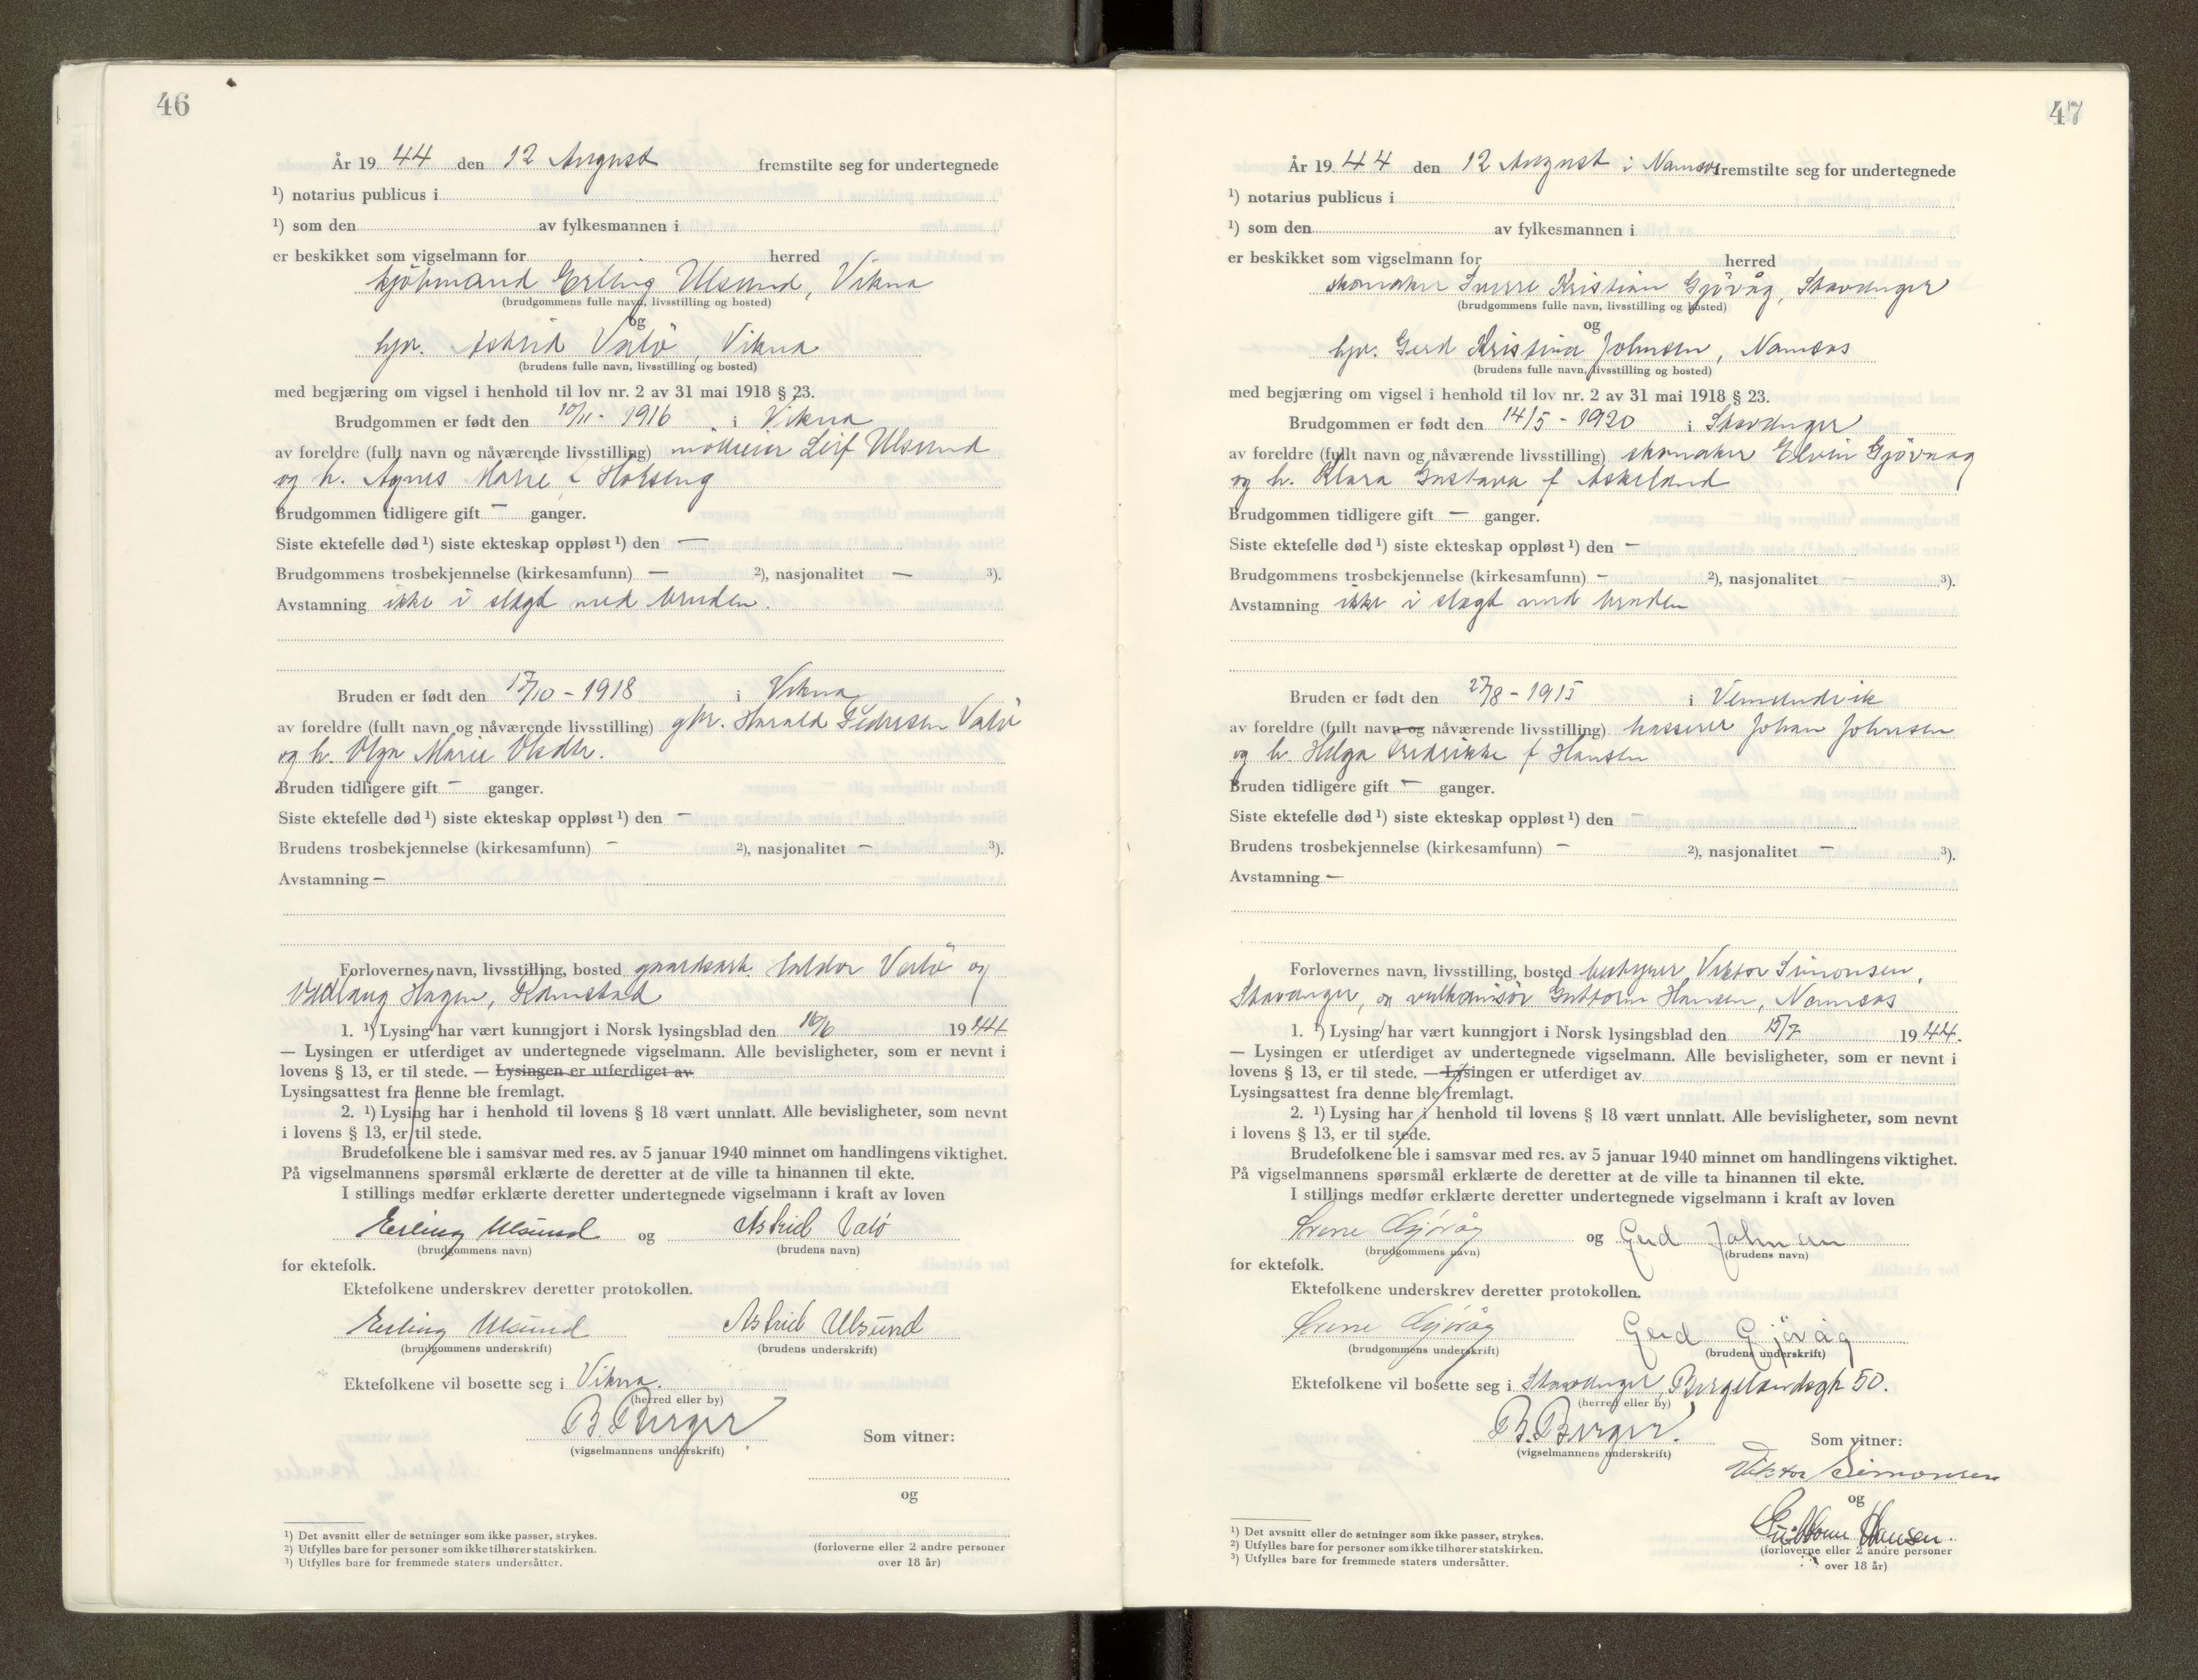 46
År 19 44 den 12 August fremstilte seg for undertegnede
¹) notarius publicus i
¹) som den av fylkesmannen i
er beskikket som vigselmann for herred
kjöbmand Erling Ulsund, Vikna
(brudgommens fulle navn, livsstilling og bosted)
og
hjv. Astrid Valö, Vikna
(brudens fulle navn, livsstilling og bosted)
med begjæring om vigsel i henhold til lov nr. 2 av 31 mai 1918 § 23.
Brudgommen er født den 10/11- 1916 i Vikna
av foreldre (fullt navn og nåværende livsstilling) mölleier Leif Ulsund
og h. Agnes Marie f
Brudgommen tidligere gift — ganger.
Siste ektefelle død ¹) siste ekteskap oppløst ¹) den —
Brudgommens trosbekjennelse (kirkesamfunn) — ²), nasjonalitet — ³).
Avstamning ikke i slegt med bruden.
Bruden er født den 17/10 - 1918 i Vikna
av foreldre (fullt navn og nåværende livsstilling) gbr. Harald Pedersen Valö
og h. Olga Marie Olsdtr.
Bruden tidligere gift — ganger.
Siste ektefelle død ¹) siste ekteskap oppløst ¹) den —
Brudens trosbekjennelse (kirkesamfunn) — ²), nasjonalitet — ³).
Avstamning —
Forlovernes navn, livsstilling, bosted gaardsarb. Haldor Valö og
Hagen, Ramstad
1. ¹) Lysing har vært kunngjort i Norsk lysingsblad den 16/6 19 44
— Lysingen er utferdiget av undertegnede vigselmann. Alle bevisligheter, som er nevnt i
lovens § 13, er til stede. — Lysingen er utferdiget av
Lysingsattest fra denne ble fremlagt.
2. ¹) Lysing har i henhold til lovens § 18 vært unnlatt. Alle bevisligheter, som nevnt
i lovens § 13, er til stede.
Brudefolkene ble i samsvar med res. av 5 januar 1940 minnet om handlingens viktighet.
På vigselmannens spørsmål erklærte de deretter at de ville ta hinannen til ekte.
I stillings medfør erklærte deretter undertegnede vigselmann i kraft av loven
Erling Ulsund og Astrid Valö
(brudgommens navn) (brudens navn)
for ektefolk.
Ektefolkene underskrev deretter protokollen.
Erling Ulsund Astrid Ulsund
(brudgommens underskrift) (brudens underskrift)
Ektefolkene vil bosette seg i Vikna.
(herred eller by)
B. Berger
(vigselmannens underskrift)
Som vitner:
og
(forloverne eller 2 andre personer
over 18 år)
¹) Det avsnitt eller de setninger som ikke passer, strykes.
²) Utfylles bare for personer som ikke tilhører statskirken.
³) Utfylles bare for fremmede staters undersåtter.
47
År 19 44 den 12 August i Namsos fremstilte seg for undertegnede
¹) notarius publicus i
¹) som den av fylkesmannen i
er beskikket som vigselmann for herred
skomaker Sverre Kristian Gjövåg, Stavanger
(brudgommens fulle navn, livsstilling og bosted)
og
hjv. Gerd Kristina Johnsen, Namsos
(brudens fulle navn, livsstilling og bosted)
med begjæring om vigsel i henhold til lov nr. 2 av 31 mai 1918 § 23.
Brudgommen er født den 14/5 - 1920 i Stavanger
av foreldre (fullt navn og nåværende livsstilling) skomaker Elvin Gjövaag
og h. Klara Gustava f Askeland
Brudgommen tidligere gift — ganger.
Siste ektefelle død ¹) siste ekteskap oppløst ¹) den —
Brudgommens trosbekjennelse (kirkesamfunn) — ²), nasjonalitet — ³).
Avstamning ikke i slegt med bruden
Bruden er født den 27/8 - 1915 i Vemundvik
av foreldre (fullt navn og nåværende livsstilling) kasserer Johan Johnsen
og h. Helga Fredrikke f Hansen
Bruden tidligere gift — ganger.
Siste ektefelle død ¹) siste ekteskap oppløst ¹) den —
Brudens trosbekjennelse (kirkesamfunn) — ²), nasjonalitet — ³).
Avstamning —
Forlovernes navn, livsstilling, bosted bestyrer Viktor Simonsen,
Stavanger, og vulkanisör Guttorm Hansen, Namsos
1. ¹) Lysing har vært kunngjort i Norsk lysingsblad den 15/7 19 44.
— Lysingen er utferdiget av undertegnede vigselmann. Alle bevisligheter, som er nevnt i
lovens § 13, er til stede. — Lysingen er utferdiget av
Lysingsattest fra denne ble fremlagt.
2. ¹) Lysing har i henhold til lovens § 18 vært unnlatt. Alle bevisligheter, som nevnt
i lovens § 13, er til stede.
Brudefolkene ble i samsvar med res. av 5 januar 1940 minnet om handlingens viktighet.
På vigselmannens spørsmål erklærte de deretter at de ville ta hinannen til ekte.
I stillings medfør erklærte deretter undertegnede vigselmann i kraft av loven
Sverre Gjövåg og Gerd Johnsen
(brudgommens navn) (brudens navn)
for ektefolk.
Ektefolkene underskrev deretter protokollen.
Sverre Gjövåg Gerd Gjövåg
(brudgommens underskrift) (brudens underskrift)
Ektefolkene vil bosette seg i Stavanger, Bergelandsgt 50.
(herred eller by)
B. Berger.
(vigselmannens underskrift)
Som vitner:
Viktor Simonsen
og
Guttorm Hansen.
(forloverne eller 2 andre personer
over 18 år)
¹) Det avsnitt eller de setninger som ikke passer, strykes.
²) Utfylles bare for personer som ikke tilhører statskirken.
³) Utfylles bare for fremmede staters undersåtter.